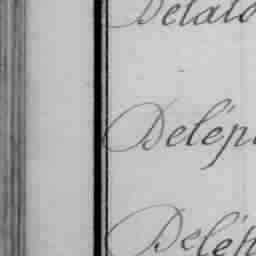 Delato
Delép
Delép